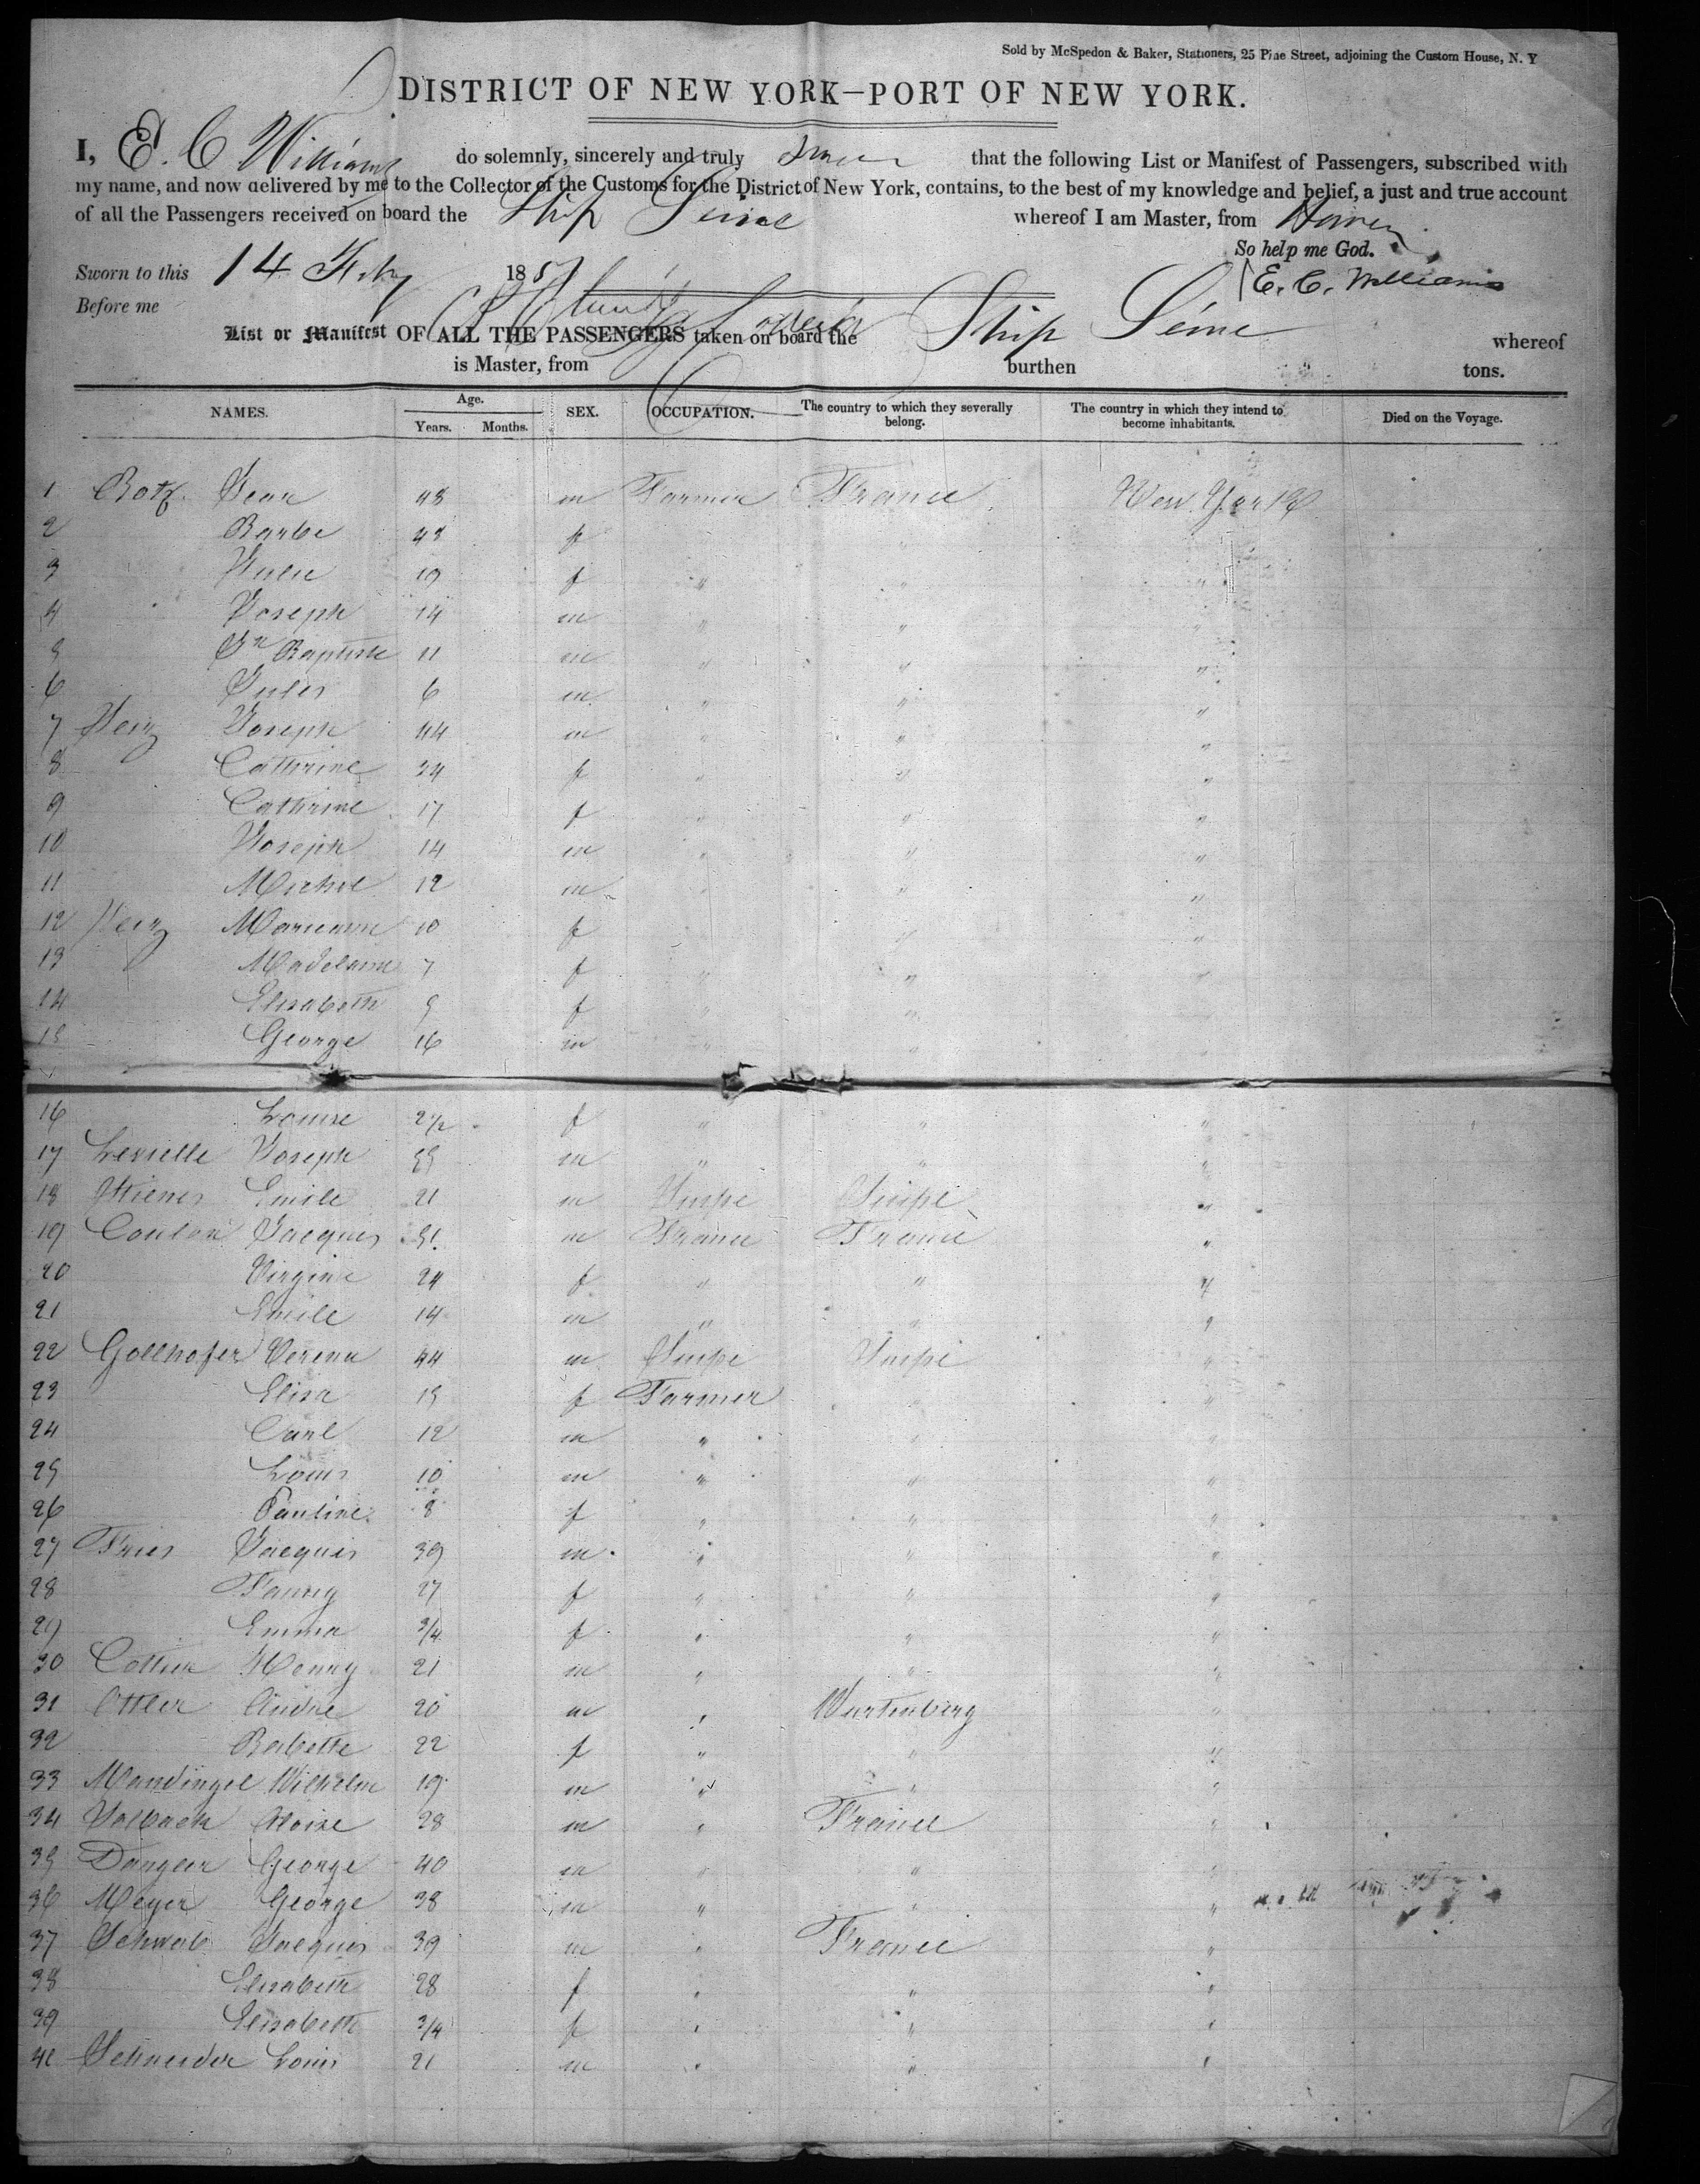 Sold by McSpedon & Baker, Stationers, 25 Pine Street, adjoining the Custom House, N. Y
DISTRICT OF NEW YORK—PORT OF NEW YORK.
I, E. C Williams do solemnly, sincerely and truly swear that the following List or Manifest of Passengers, subscribed with
my name, and now delivered by me to the Collector of the Customs for the District of New York, contains, to the best of my knowledge and belief, a just and true account
of all the Passengers received on board the Ship Seine whereof I am Master, from Havre
So help me God.
Sworn to this 14 Feby 185 E. C. Williams
Before me
List or Manifest OF ALL THE PASSENGERS taken on board the Ship Seine whereof
is Master, from burthen tons.
NAMES. Age. Years. Months. SEX. OCCUPATION. The country to which they severally belong. The country in which they intend to become inhabitants. Died on the Voyage.
1 Botz Jean 48 m Farmer France New York
2 Barbe 48 f
3 Julie 19 f " " "
4 Joseph 14 m " " "
5 Jn Baptiste 11 m " " "
6 Jules 6 m " " "
7 Heinz Joseph 44 m " " "
8 Cathrine 34 f " " "
9 Cathrine 17 f " " "
10 Joseph 14 m " " "
11 Michel 12 m " " "
12 Heinz Marieanne 10 f " "
13 Madelaine 7 f " " "
14 Elisabeth 5 f " "
15 George 16 m " "
16 Louise 2 1/2 f " " "
17 Joseph 55 m " " "
18 Emile 21 m Suisse Suisse "
19 Coulon Jacques m France France "
20 Virginie 24 f " " "
21 Emile 14 m " " "
22 Gollhofer Verena 44 m Suisse Suisse "
23 Elisa 15 f Farmer " "
24 Carl 12 m " " "
25 Louis 10 m " " "
26 Pauline 8 f " " "
27 Fries Jacques 39 m " " "
28 Fanny 27 f " " "
29 Emma 3/4 f " " "
30 Henry 21 m " " "
31 Ottler Andre 20 m " Wurtenberg "
32 Babette 22 f " " "
33 Mandingel Wilhelm 19 m " " "
34 Aloise 28 m " France "
35 George 40 m " " "
36 Meyer George 38 m " " "
37 Schwab Jacques 39 m " France "
38 Elisabeth 28 f " " "
39 Elisabeth 3/4 f " " "
40 Schneider Louis 21 m " " "